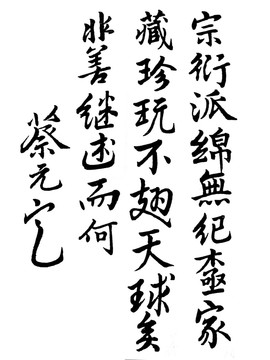 宗衍派綿無紀極家
藏珍玩不翅天球矣
非善继述而何
蔡元定